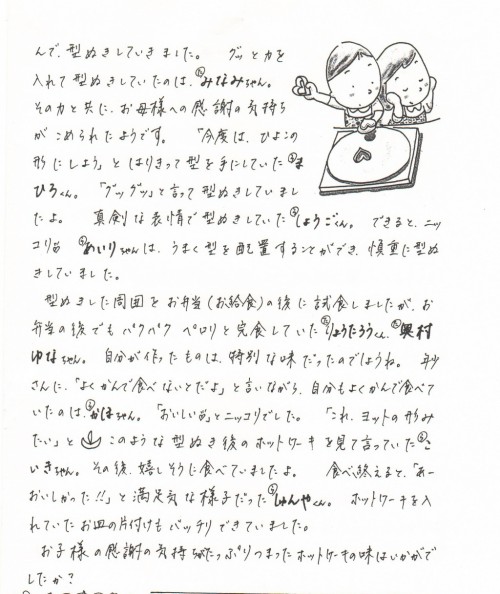 んで、型ぬきしていきました。 グッと力を
入れて型ぬきしていたのは、みなみちゃん。
その力と共に、お母様への感謝の気持ち
がこめられたようです。 「今度は、ひよこの
形にしよう」とはりきって型を手にしていたま
ひろくん。 「グッグッ」と言って型ぬきしていまし
たよ。 真剣な表情で型ぬきしていたしょうごくん。 できると、ニッ
コリ。 めいりちゃんは、うまく型を配置することができ、慎重に型ぬ
きしていました。
型ぬきした周囲をお弁当(お給食)の後に試食しましたが、お
弁当の後でもパクパク ペロリと完食していたりょうたろうくん、奥村
ゆなちゃん。 自分が作ったものは、特別な味だったのでしょうね。
さんに、「よくかんで食べないとだよ」と言いながら、自分もよくかんで食べて
いたのは、かほちゃん。 「おいしいね」とニッコリでした。 「これ、ヨットの形み
たい」と このような型ぬき後のホットケーキを見て言っていた
いきちゃん。 その後、嬉しそうに食べていましたよ。 食べ終えると、「あー
おいしかった!!」と満足気な様子だったしゅんやくん。 ホットケーキを入
れていたお皿の片付けもバッチリできていました。
お子様の感謝の気持ちがたっぷりつまったホットケーキの味はいかがで
したか?